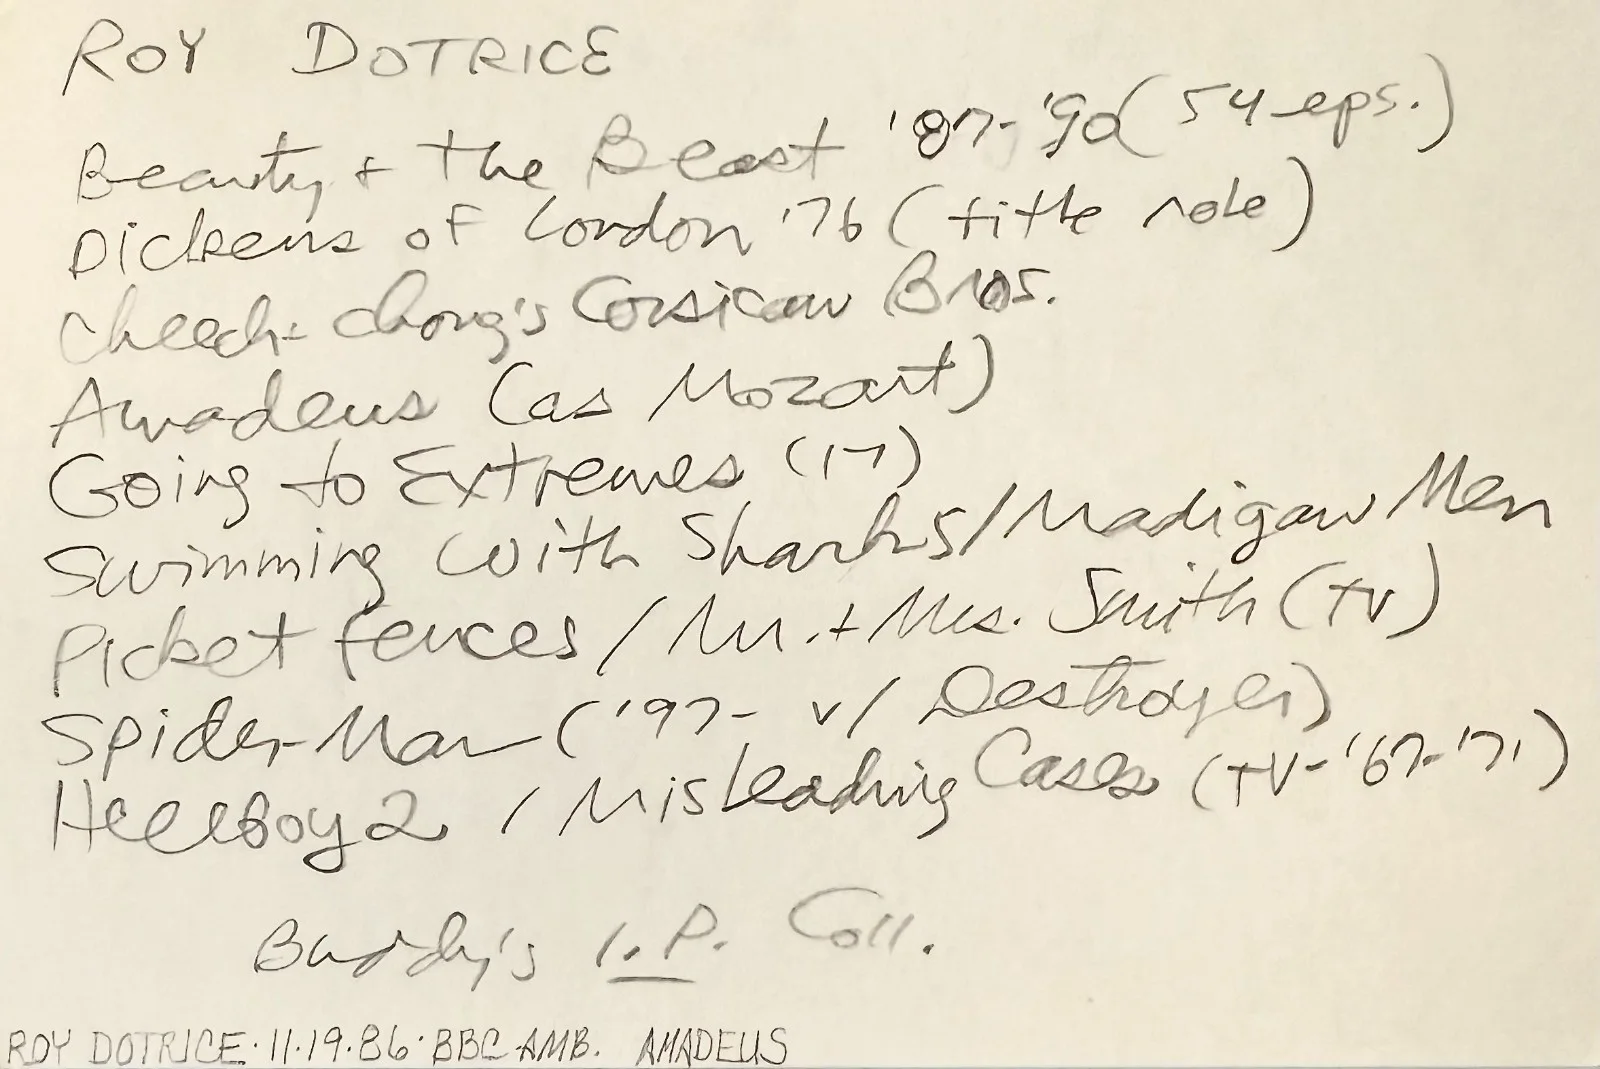 ROY DOTRICE
Beauty + the Beast '87-'90 (54 eps.)
Dickens of London '76 (title role)
Cheech + Chong's Corsican Bros.
Amadeus (as Mozart)
Going to Extremes (17)
Swimming with Sharks/Madigan Men
Picket Fences / Mr. + Mrs. Smith (TV)
Spider-Man ('97- v/ Destroyer)
Hellboy 2 / Misleading Cases (TV-'67-'71)
Buddy's I.P. Coll.
ROY DOTRICE·11·19·86·BBC AMB. AMADEUS